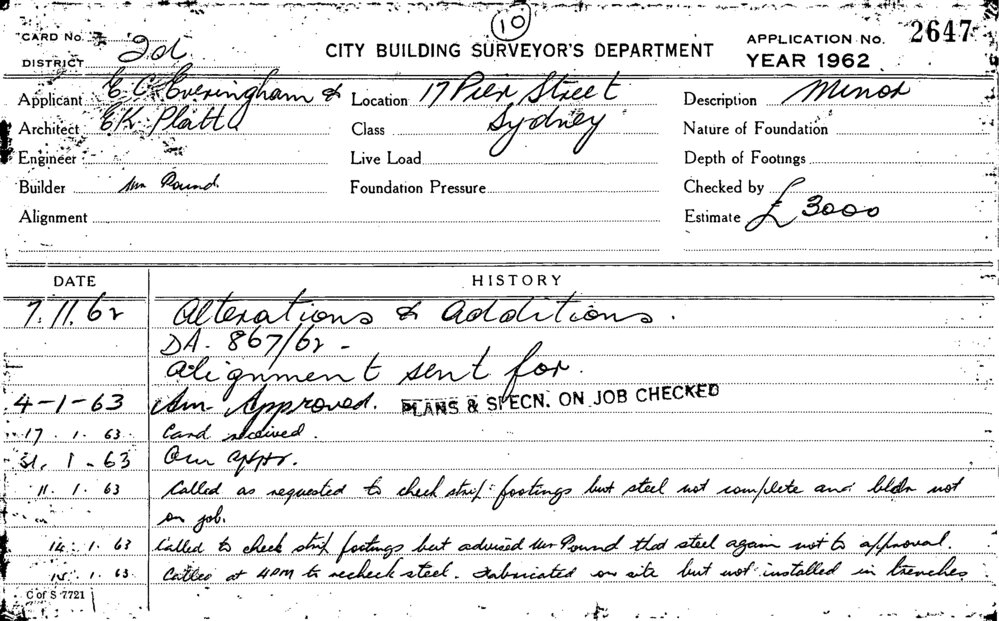 10
CARD No. 2d APPLICATION No. 2647
DISTRICT CITY BUILDING SURVEYOR'S DEPARTMENT YEAR 1962
Applicant E C Everingham & Location 17 Pier Street Description Minor
Architect E K Platt Class Sydney Nature of Foundation
Engineer Live Load Depth of Footings
Builder Mr Pound Foundation Pressure Checked by
Alignment Estimate £3000
DATE HISTORY
7.11.62 Alterations & additions.
DA. 867/62 -
Alignment sent for.
4-1-63 Approved. PLANS & SPECN. ON JOB CHECKED
17.1.63 Card received.
31.1-63 Our appr.
11.1.63 Called as requested to check strip footings but steel not complete and bldr not
on job.
14.1.63 Called to check strip footings but advised Mr Pound that steel again not to approval.
15.1.63 Called at 4PM to recheck steel. Fabricated on site but not installed in trenches
C of S 7721